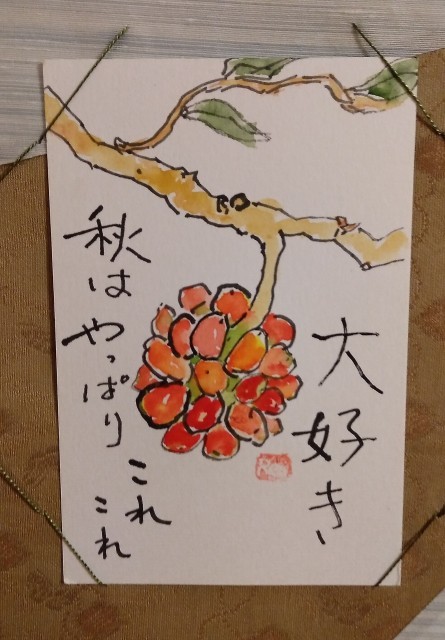 大好き
秋はやっぱり
これ
これ